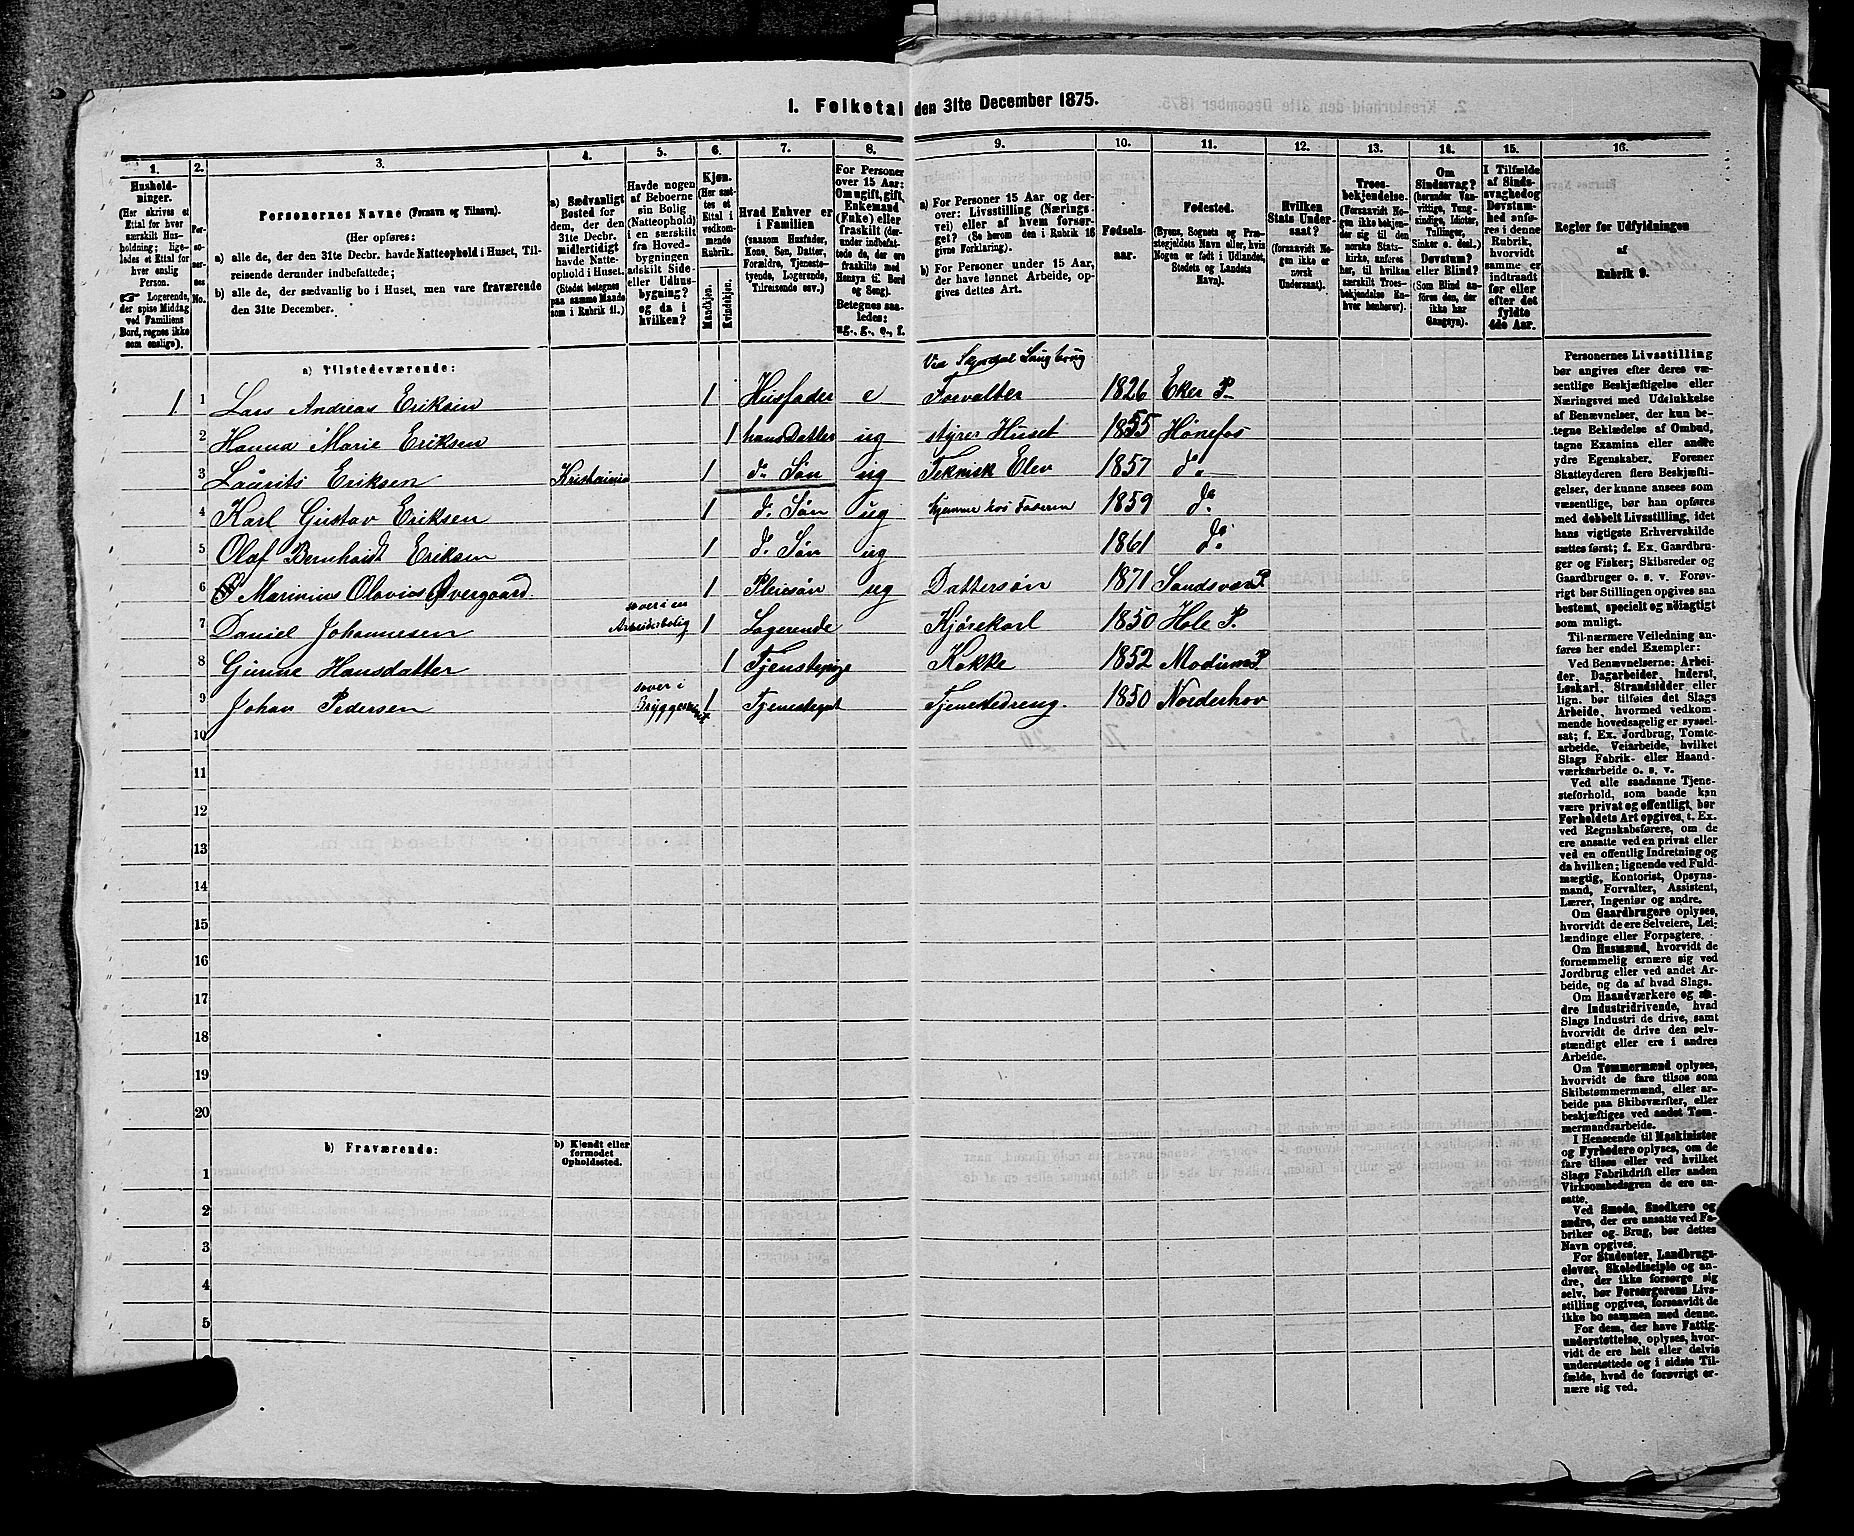 1. Folketal den 31te December 1875.
1. 2. 3. 4. 5. 6. 7. 8. 9. 10. 11. 12. 13. 14. 15. 16.
Hushold-
ninger.
(Her skrives et
Ettal for hver
særskilt Hus-
holdning; lige-
ledes et Ettal
for hver
enslig
Person.
☞ Logerende,
der spise Middag
ved Familiens
Bord, regnes ikke
som enslige).
Per-
so-
ner-
nes
No.
Personernes Navne (Fornavn og Tilnavn).
(Her opføres:
a) alle de, der den 31te Decbr. havde Natteophold i Huset, Til-
reisende derunder indbefattede;
b) alle de, der sædvanlig bo i Huset, men vare fraværende
den 31te December.
a) Sædvanligt
Bosted for
dem, der den
31te Decbr.
midlertidigt
havde Natte-
ophold i Huset.
(Stedet betegnes
paa samme Maade
som i Rubrik 11.)
Havde nogen
af Beboerne
sin Bolig
(Natteophold)
i en særskilt
fra Hoved-
bygningen
adskilt Side-
eller Udhus-
bygning?
og da i
hvilken?
Kjøn.
(Her sæt-
tes et
Ettal i
vedkom-
mende
Rubrik.
Mandkjøn.
Kvindekjøn.
Hvad Enhver er
i Familien
(saasom Husfader,
Kone, Søn, Datter,
Forældre, Tjeneste-
tyende, Logerende,
Tilreisende osv.)
For Personer
over 15 Aar:
Om ugift, gift,
Enkemand
(Enke) eller
fraskilt (der-
under indbefat-
tede de, der ere
fraskilte med
Hensyn til Bord
og Seng).
Betegnes saa-
ledes:
ug., g., e., f.
a) For Personer 15 Aar og der-
over: Livsstilling (Nærings-
vei) eller af hvem forsør-
get? (Se herom den i Rubrik 16
givne Forklaring).
b) For Personer under 15 Aar,
der have lønnet Arbeide, op-
gives dettes Art.
Fødsels-
aar.
Fødested.
(Byens, Sognets og Præ-
stegjeldets Navn eller, hvis
Nogen er født i Udlandet,
Stedets og Landets
Navn).
Hvilken
Stats Under-
saat?
(forsaavidt No-
gen ikke er
norsk
Undersaat).
Troes-
bekjendelse.
(Forsaavidt No-
gen ikke bekjen-
der sig til den
norske Stats-
kirke, anføres
her, til hvilken
særskilt Troes-
bekjendelse En-
hver henhører).
Om
Sindssvag?
(herunder Van-
vittige, Tung-
sindige, Idioter,
Tullinger,
Sinker o. desl.)
Døvstum?
eller Blind?
(Som Blind an-
føres den, der
ikke har
Gangsyn).
I Tilfælde
af Sinds-
svaghed og
Døvstum-
hed anfø-
res i denne
Rubrik,
hvorvidt
samme er
indtraadt
før eller
efter det
fyldte
4de Aar.
Regler for Udfyldningen
af
Rubrik 9.
a) Tilstedeværende:
Ved Sugbrug
1 1 Lars Andreas Eriksen 1 Husfader e Forvalter 1826 Eker P.
2 Hanna Marie Eriksen 1 hans Datter ug styrer Huset 1855 Hønefos
3 Laurits Eriksen Kristiania 1 do Søn ug Teknisk Elev 1857 do
4 Karl Gustav Eriksen 1 do Søn ug hjemme hos Faderen 1859 do
5 Olaf Bernhardt Eriksen 1 do Søn ug 1861 do
6 Marinius Olavius Øvergaard 1 Pleiesøn ug Dattersøn 1871 Sandsvær P.
7 Daniel Johannesen sover i en Arbeiderbolig 1 Logerende Kjørekarl 1850 Hole P.
8 Gunne Hansdatter 1 Tjenstepige Kokke 1852 Modum P
9 Johan Pedersen sover i Bryggerhuset 1 Tjenstegut Tjenestedreng. 1850 Norderhov
10
11
12
13
14
15
16
17
18
19
20
b) Fraværende:
b) Kjendt eller
formodet
Opholdssted.
1
2
3
4
5
Personernes Livsstilling
bør angives efter deres væ-
sentlige Beskjæftigelse eller
Næringsvei med Udelukkelse
af Benævnelser, der kun be-
tegne Beklædelse af Ombud,
tagne Examina eller andre
ydre Egenskaber. Forener
Skatteyderen flere Beskjæfti-
gelser, der kunne ansees som
væsentlige, bør han opføres
med dobbelt Livsstilling, idet
hans vigtigste Erhvervskilde
sættes først; f. Ex. Gaardbru-
ger og Fisker; Skibsreder og
Gaardbruger o. s. v. Forøv-
rigt bør Stillingen opgives saa
bestemt, specielt og nøiagtigt
som muligt.
Til nærmere Veiledning an-
føres her endel Exempler:
Ved Benævnelserne: Arbei-
der, Dagarbeider, Inderst,
Løskarl, Strandsidder eller
lign. bør tilføies det Slags
Arbeide, hvormed vedkom-
mende hovedsagelig er syssel-
sat; f. Ex. Jordbrug, Tomte-
arbeide, Veiarbeide, hvilket
Slags Fabrik- eller Haand-
værksarbeide o. s. v.
Ved alle saadanne Tjene-
steforhold, som baade kan
være privat og offentligt, bør
Forholdets Art opgives, t. Ex.
ved Regnskabsførere, om de
ere ansatte ved en privat eller
ved en offentlig Indretning og
da hvilken; lignende ved Fuld-
mægtig, Kontorist, Opsyns-
mand, Forvalter, Assistent,
Lærer, Ingeniør og andre.
Om Gaardbrugere oplyses,
hvorvidt de ere Selveiere, Lei-
lændinge eller Forpagtere.
Om Husmænd, hvorvidt de
fornemmelig ernære sig ved
Jordbrug eller ved andet Ar-
beide, og da af hvad Slags.
Om Haandværkere og an-
dre Industridrivende, hvad
Slags Industri de drive, samt
hvorvidt de drive den selv-
stændigt eller ere i andres
Arbeide.
Om Tømmermænd oplyses,
hvorvidt de fare tilsøs som
Skibstømmermænd, eller ar-
beide paa Skibsværfter, eller
beskjæftiges ved andet Tøm-
mermandsarbeide.
I Henseende til Maskinister
og Fyrbødere oplyses, om de
fare tilsøs eller ved hvilket
Slags Fabrikdrift eller anden
Virksomhedsgren de ere an-
satte.
Ved Smede, Snedkere og
andre, der ere ansatte ved Fa-
briker og Brug, bør dettes
Navn opgives.
For Studenter, Landbrugs-
elever, Skoledisciple og an-
dre, der ikke forsørge sig
selv, bør Forsørgerens Livs-
stilling opgives, forsaavidt de
ikke bo sammen med denne.
For dem, der have Fattig-
understøttelse, oplyses, hvor-
vidt de ere helt eller delvis
understøttede og i sidste Til-
fælde, hvad de forøvrigt er-
nære sig ved.